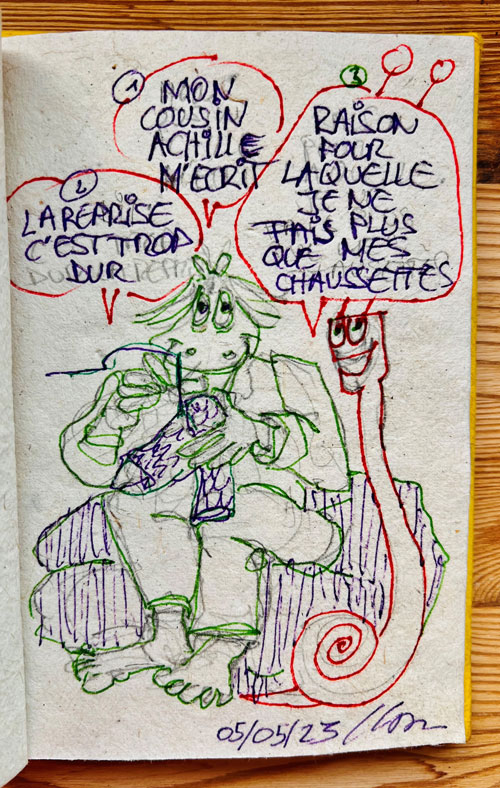 1
MON
COUSIN
ACHILLE
M'ECRIT
2
LA REPRISE
C'EST TROP
DUR
3
RAISON
POUR
LAQUELLE
JE NE
FAIS PLUS
QUE MES
CHAUSSETTES
05/05/23